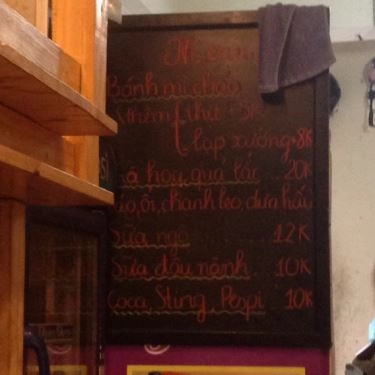 Menu
Bánh mì chảo
thêm thịt +5K
lạp xưởng+8K
hoa quả lắc ... 20K
táo, ổi, chanh leo, dưa hấu
Sữa ngô ........ 12K
Sữa đậu nành .. 10K
Coca, Sting, Pespi . 10K